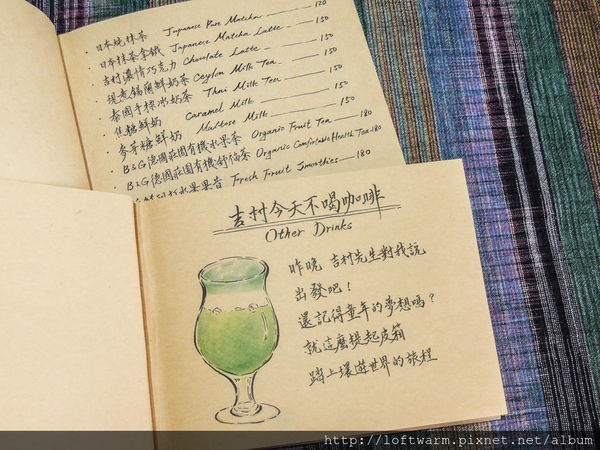 日本純抹茶 Japanese Pure Matcha 120
日本抹茶拿鐵 Japanese Matcha Latte 150
吉村濃情巧克力 Chocolate Latte 150
現煮錫蘭鮮奶茶 Ceylon Milk Tea 150
泰國手標冰奶茶 Thai Milk Tea 150
焦糖鮮奶 Caramel Milk 150
麥芽糖鮮奶 Maltose Milk 150
B&G德國莊園有機水果茶 Organic Fruit Tea 180
B&G德國莊園有機舒活茶 Organic Comfortable Health Tea 180
Fresh Fruit Smoothies 180
吉村今天不喝咖啡
Other Drinks
昨晚 吉村先生對我說
出發吧！
還記得童年的夢想嗎？
就這麼提起皮箱
踏上環遊世界的旅程
http://loftwarm.pixnet.net/album